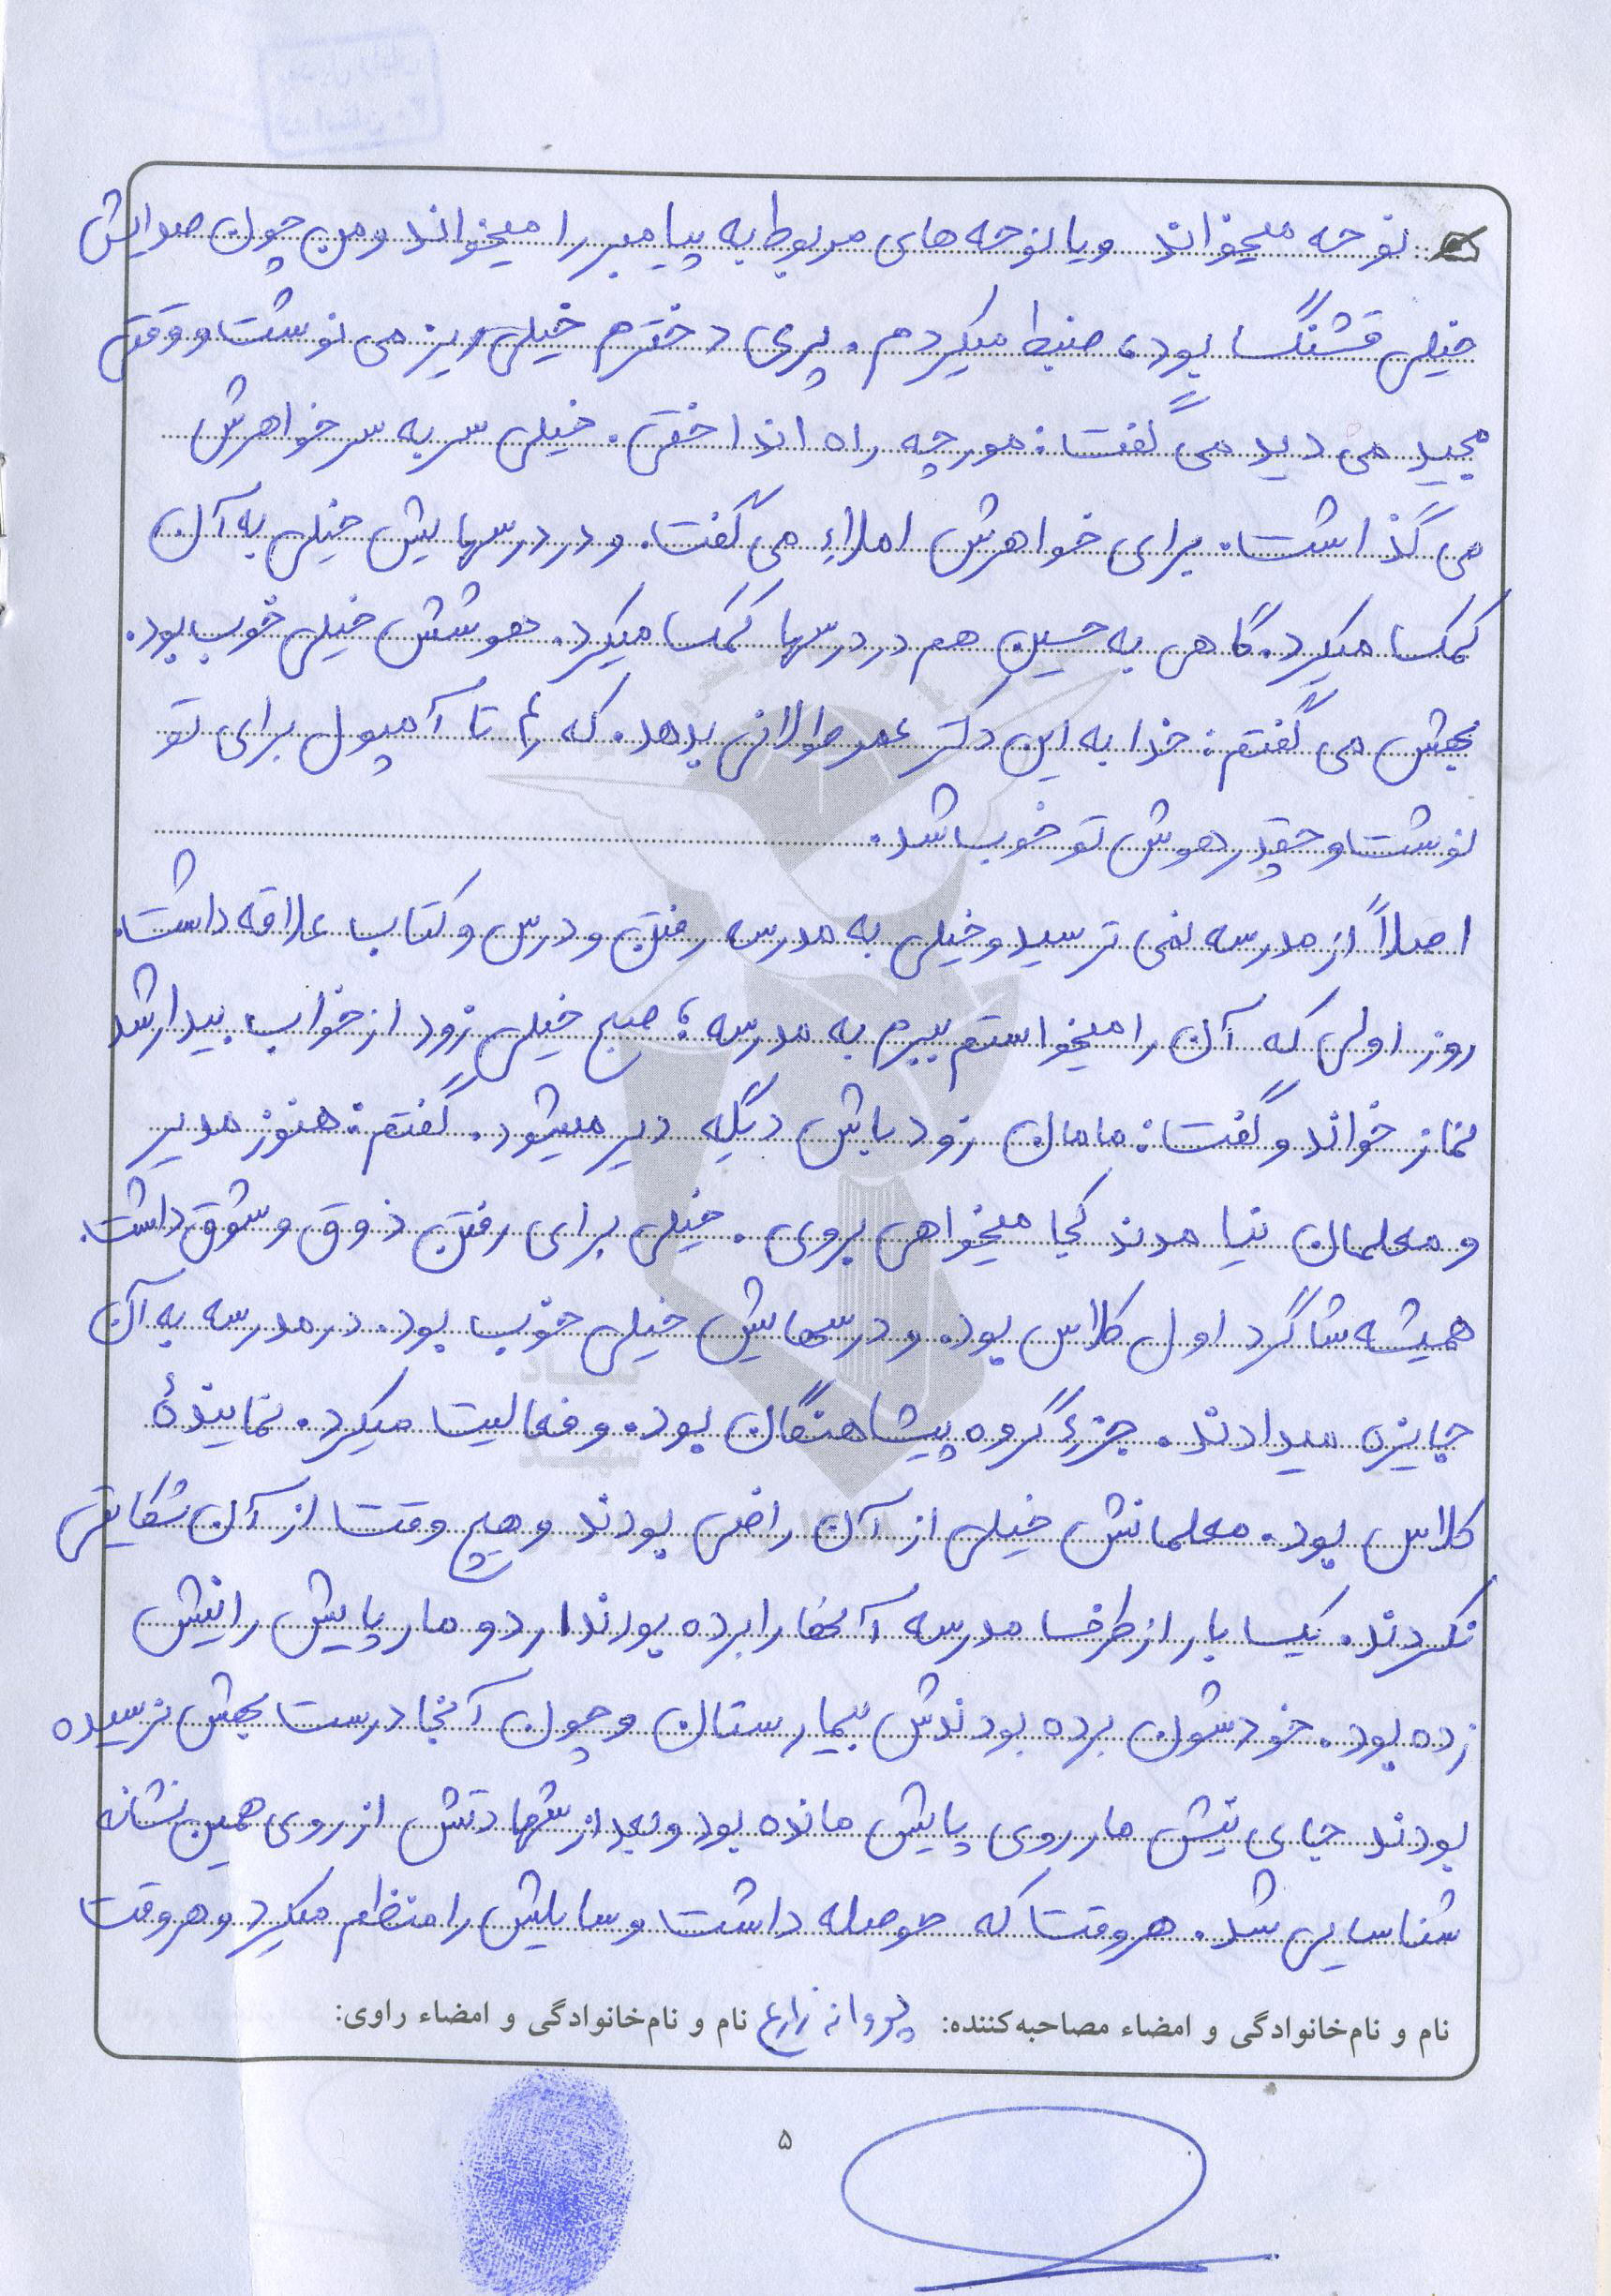 نوحه میخواند و یا نوحه های مربوط به پیامبر را میخواند و من چون صدایش
خیلی قشنگ بود، ضبط میکردم. پری دخترم خیلی ریز می نوشت و وقتی
مجید می دید می گفت: مورچه راه انداختی. خیلی سر به سر خواهرش
می گذاشت. برای خواهرش املاء می گفت. و در درسهایش خیلی به آن
کمک میکرد. گاهی به حسین هم در درسها کمک میکرد. هوشش خیلی خوب بود.
بهش می گفتم: خدا به این دکتر عمر طولانی بدهد. که ۴ تا آمپول برای تو
نوشت و چقدر هوش تو خوب شد.
اصلاً از مدرسه نمی ترسید و خیلی به مدرسه رفتن و درس و کتاب علاقه داشت.
روز اولی که آن را میخواستم ببرم به مدرسه؛ صبح خیلی زود از خواب بیدار شد
نماز خواند و گفت: مامان زود باش دیگه دیر میشود. گفتم: هنوز مدیر
و معلمان نیامدند کجا میخواهی بروی. خیلی برای رفتن ذوق و شوق داشت.
همیشه شاگرد اول کلاس بود. و درسهایش خیلی خوب بود. در مدرسه به آن
جایزه میدادند. جزءِ گروه پیشاهنگان بود. و فعالیت میکرد. نمایندۀ
کلاس بود. معلمانش خیلی از آن راضی بودند و هیچ وقت از آن شکایتی
نکردند. یک بار از طرف مدرسه آنها را برده بودند اردو مار پایش را نیش
زده بود. خودشون برده بودندش بیمارستان و چون آنجا درست بهش نرسیده
بودند جای نیش مار روی پایش مانده بود و بعد از شهادتش از روی همین نشانه
شناسایی شد. هر وقت که حوصله داشت وسایلش را منظم میکرد و هر وقت
نام و نام‌خانوادگی و امضاء مصاحبه‌کننده: پروانه زارع نام و نام‌خانوادگی و امضاء راوی:
۵